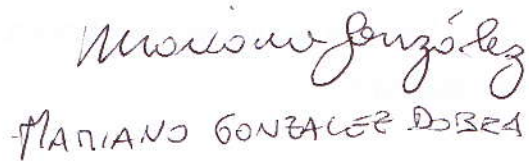 Mariano González
MARIANO GONZALEZ DOBRA